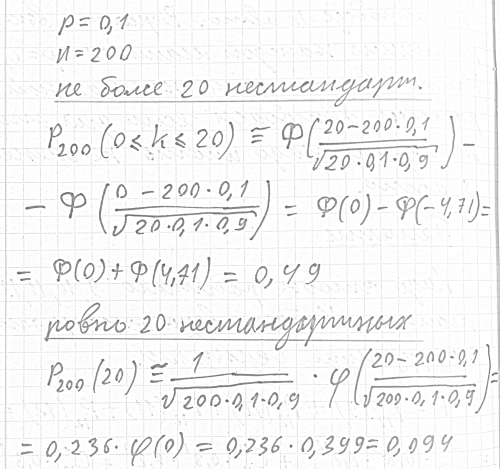 p = 0,1
n = 200
не более 20 нестандарт.
P₂₀₀(0 ≤ k ≤ 20) ≅ Ф((20 − 200·0,1)/√(20·0,1·0,9)) −
− Ф((0 − 200·0,1)/√(20·0,1·0,9)) = Ф(0) − Ф(−4,71) =
= Ф(0) + Ф(4,71) = 0,49
ровно 20 нестандартных
P₂₀₀(20) ≅ 1/√(200·0,1·0,9) · φ((20 − 200·0,1)/√(200·0,1·0,9)) =
= 0,236 · φ(0) = 0,236 · 0,399 = 0,094